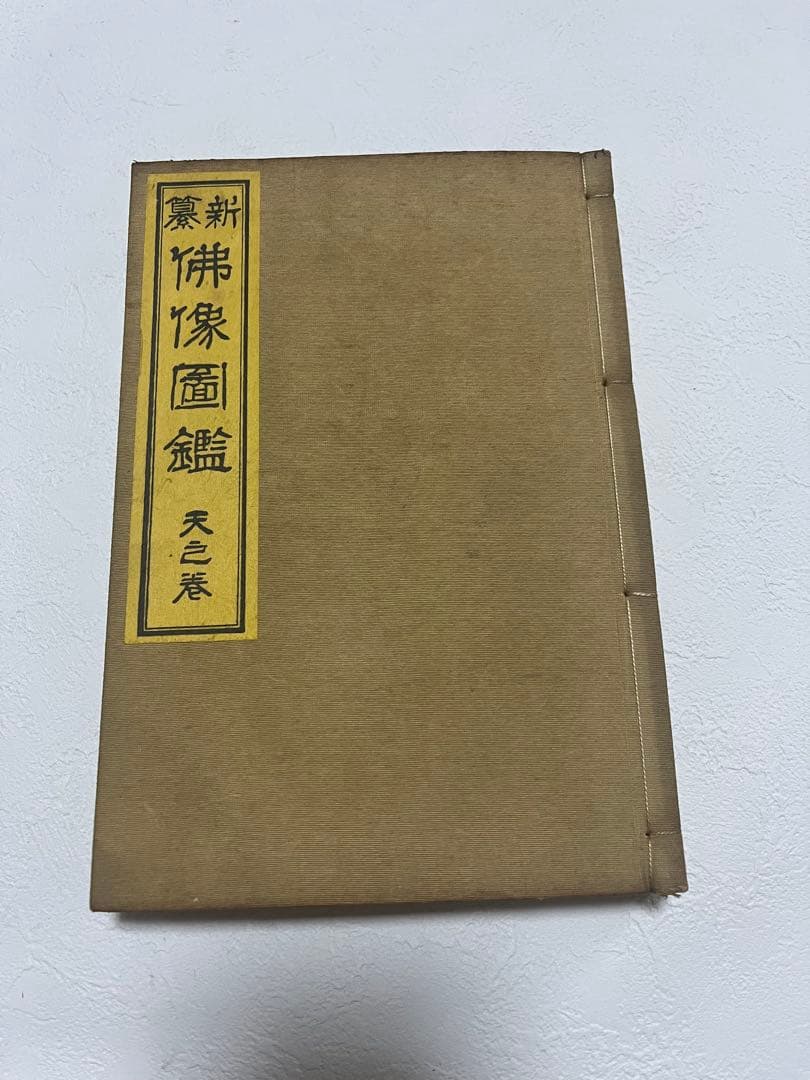 新纂
佛像圖鑑
天之卷